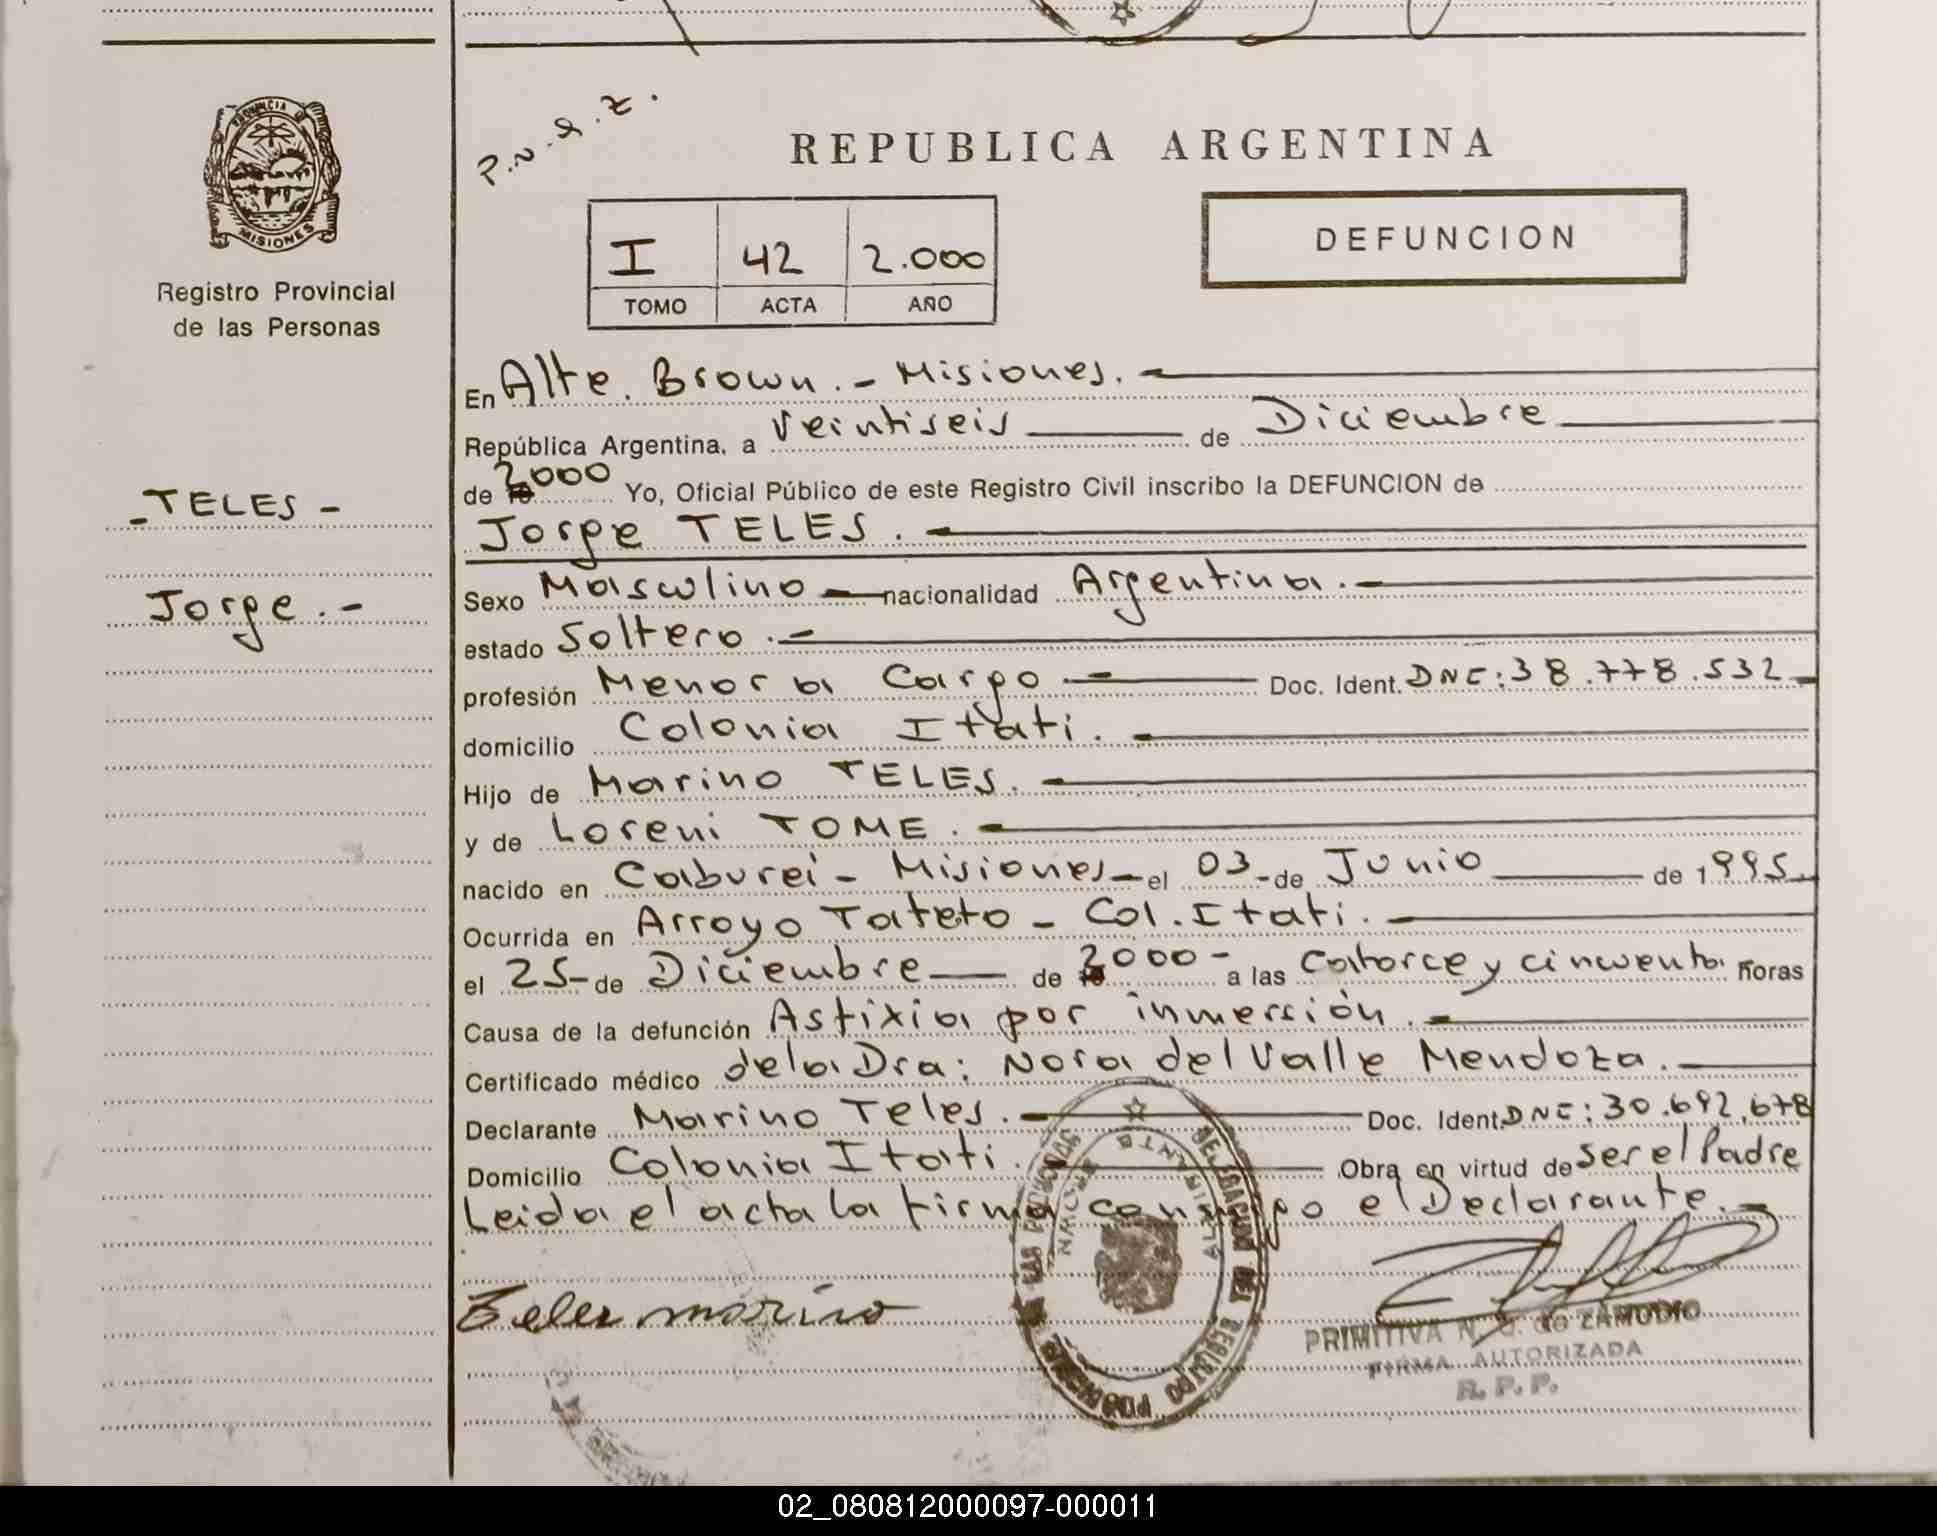 PROVINCIA
MISIONES
Registro Provincial
de las Personas
- TELES -
Jorge.-
P.N.A.Z.
REPUBLICA ARGENTINA
I 42 2.000
TOMO ACTA AÑO
DEFUNCION
En Alte. Brown.- Misiones.
República Argentina, a veintiseis de Diciembre
de 2000 Yo, Oficial Público de este Registro Civil inscribo la DEFUNCION de
Jorge TELES.
Sexo Masculino nacionalidad Argentina.-
estado Soltero.-
profesión Menor a Cargo Doc. Ident. DNI: 38.778.532
domicilio Colonia Itati.
Hijo de Marino TELES.
y de Loreni TOME.
nacido en Caburei - Misiones - el 03 - de Junio de 1995.
Ocurrida en Arroyo Tateto - Col. Itati.
el 25 - de Diciembre de 2000 - a las Catorce y cincuenta horas
Causa de la defunción Asfixia por inmersión.
Certificado médico de la Dra: Nora del Valle Mendoza.
Declarante Marino Teles. Doc. Ident. DNI: 30.692.678
Domicilio Colonia Itati. Obra en virtud de ser el Padre
Leida el acta la firma conmigo el Declarante.-
Teles marino
DELEGACION DEL REGISTRO DE LAS PERSONAS
ALMIRANTE BROWN
PRIMITIVA N. G. de ZAMUDIO
FIRMA AUTORIZADA
R. P. P.
02_080812000097-000011